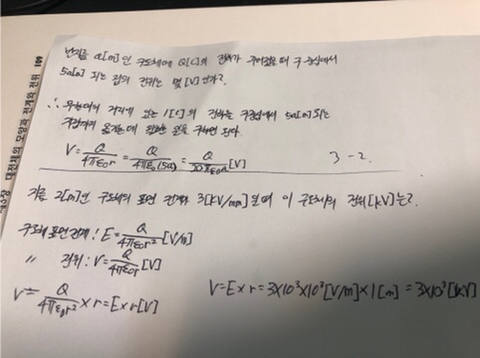 반지름 a[m]인 구도체에 Q[C]의 전하가 주어졌을 때 구 중심에서
5a[m] 되는 점의 전위는 몇 [V]인가?
∴ 무한대의 거리에 있는 1[C]의 전하를 구중심에서 5a[m] 되는
까지 옮기는데 필요한 일을 구하면 된다
V = Q/4πε₀r = Q/4πε₀(5a) = Q/20πε₀a [V]
3-2.
지름 2[m]인 구도체의 표면 전계가 3[kV/mm]일 때 이 구도체의 전위[kV]는?
구도체 표면전계 : E = Q/4πε₀r² [V/m]
〃 전위 : V = Q/4πε₀r [V]
V = Q/4πε₀r² × r = E × r [V]
V = E × r = 3×10³×10³[V/m]×1[m] = 3×10³[kV]
대전체의 모양과 전계와 전위 109